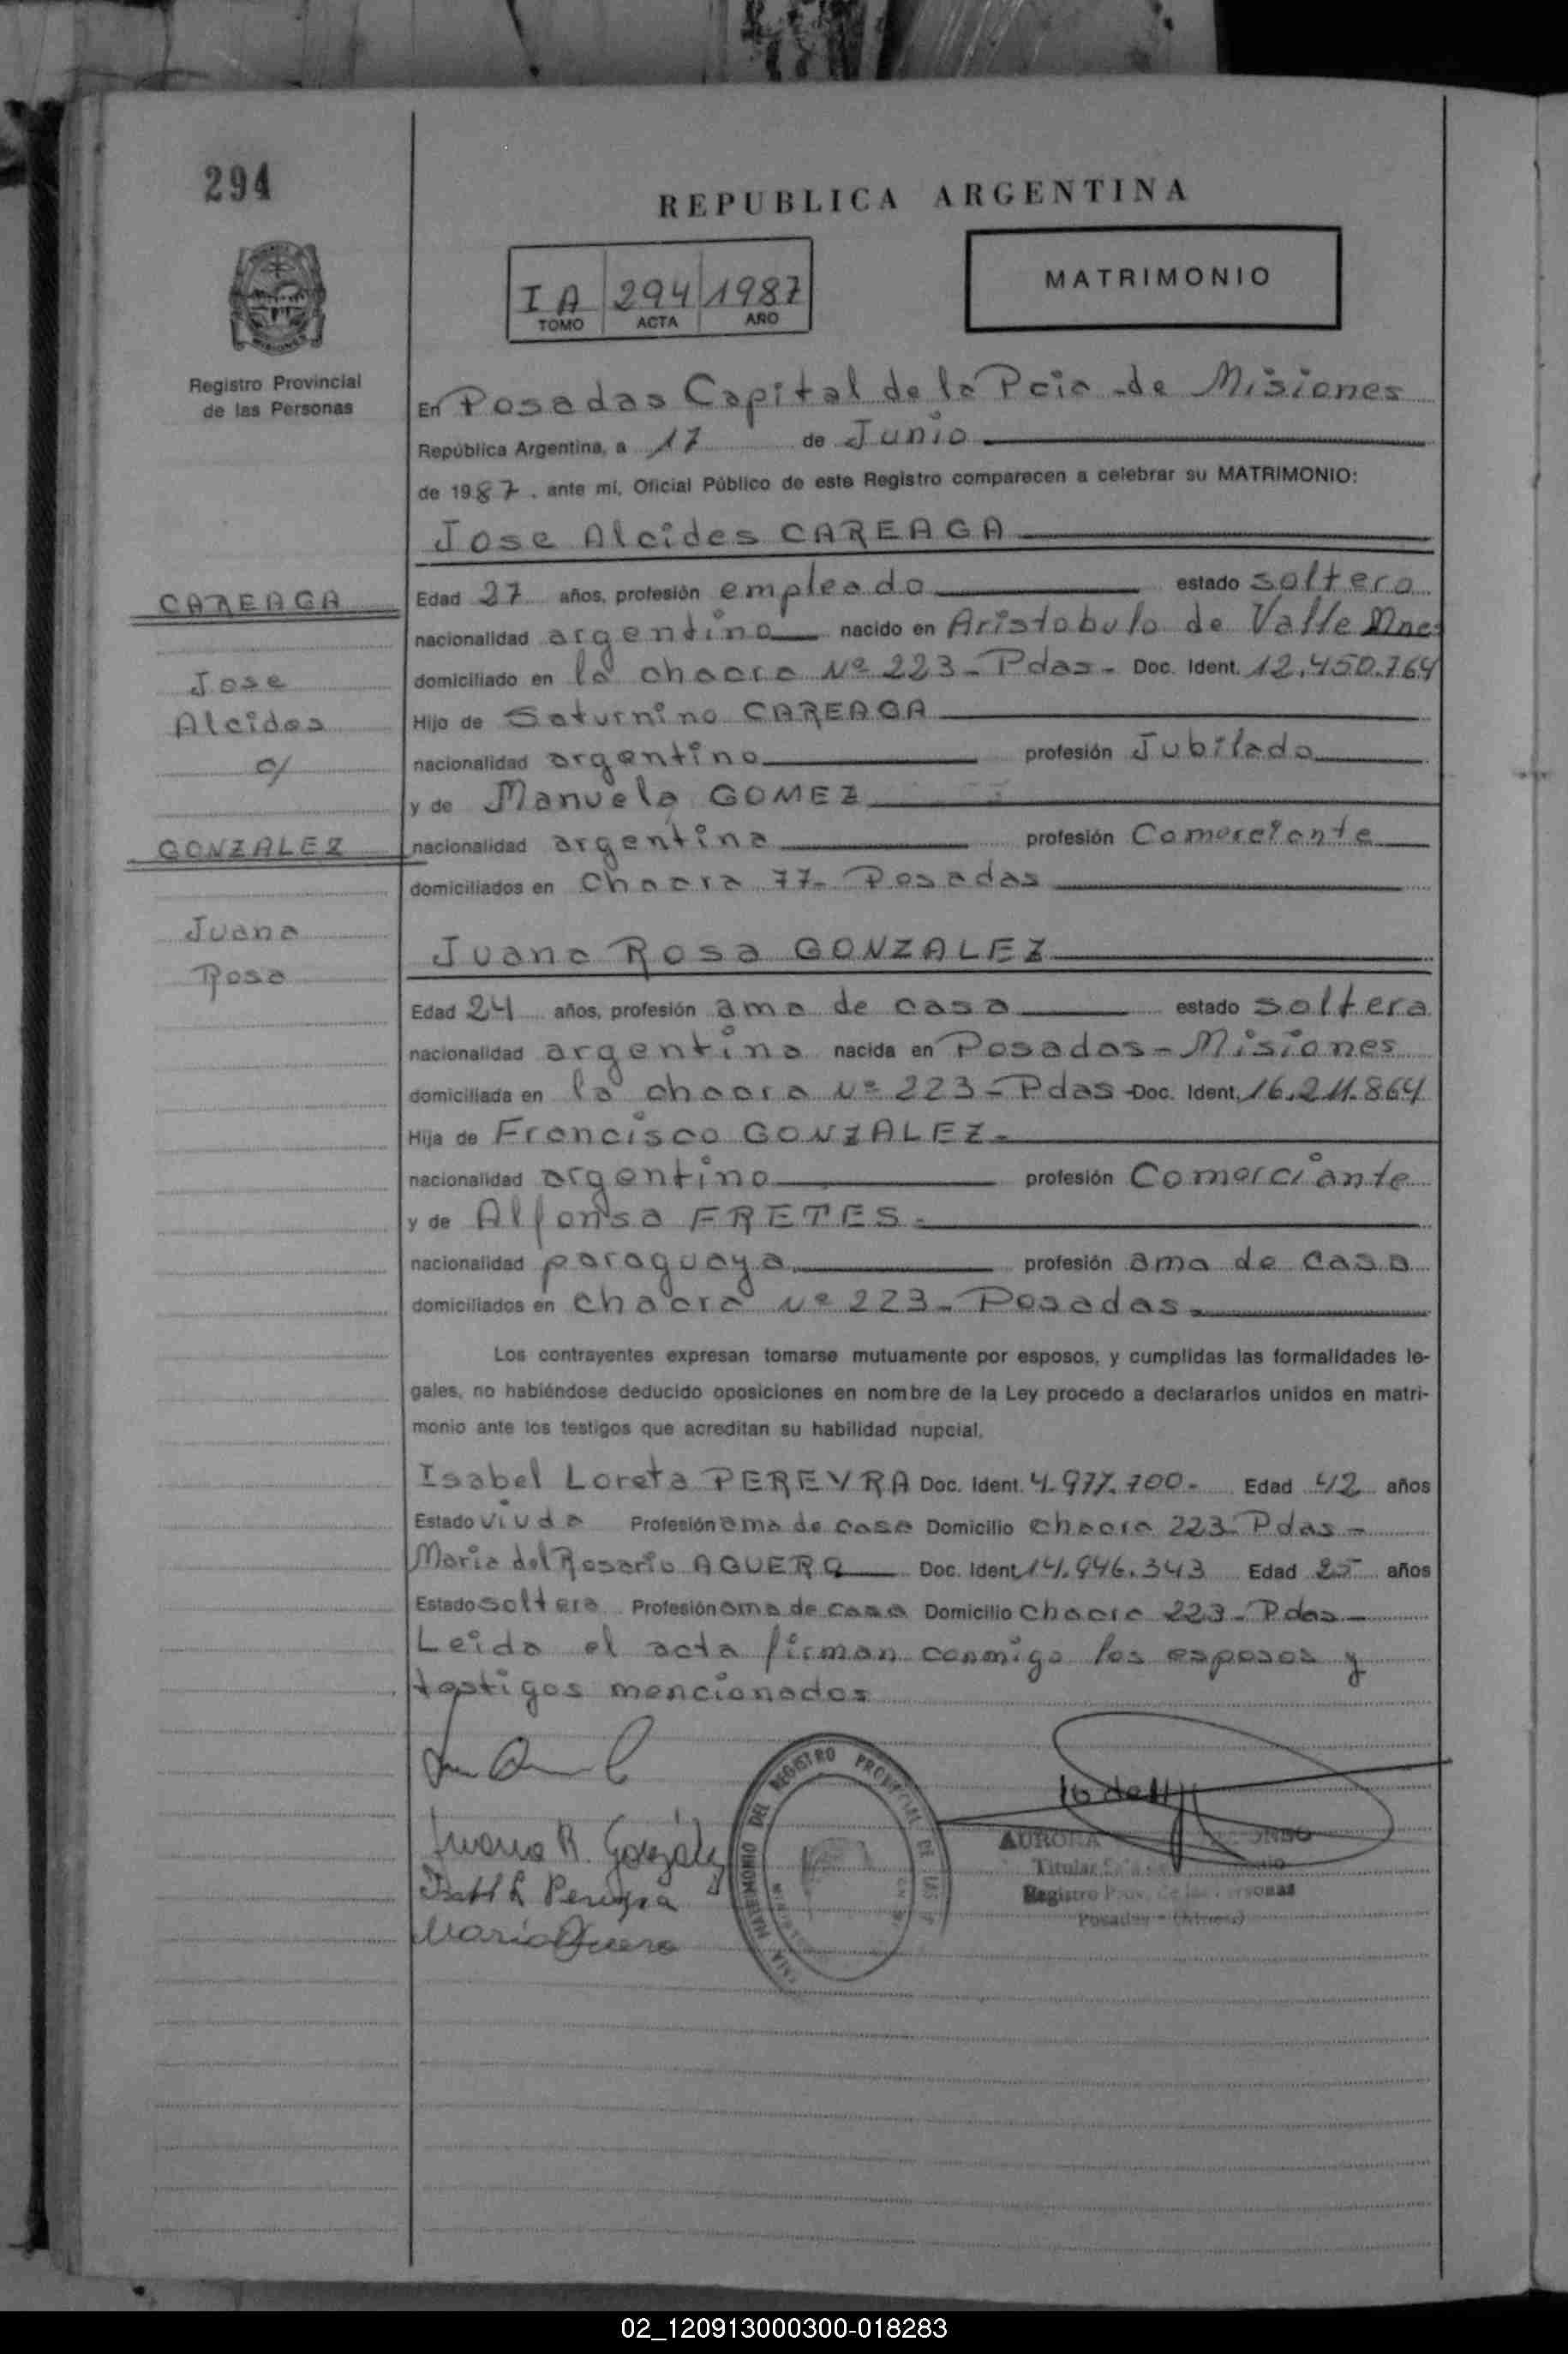 294
REPUBLICA ARGENTINA
I A 294 1987
TOMO ACTA AÑO
MATRIMONIO
Registro Provincial
de las Personas
En Posadas Capital de la Pcia de Misiones
República Argentina, a 17 de Junio
de 1987, ante mí, Oficial Público de este Registro comparecen a celebrar su MATRIMONIO:
Jose Alcides CAREAGA
CAREAGA
Jose
Alcides
c/
GONZALEZ
Juana
Rosa
Edad 27 años, profesión empleado estado soltero
nacionalidad argentino nacido en Aristobulo de Valle Mnes
domiciliado en la chacra Nº 223 - Pdas - Doc. Ident. 12.450.764
Hijo de Saturnino CAREAGA
nacionalidad argentino profesión Jubilado
y de Manuela GOMEZ
nacionalidad argentina profesión Comerciante
domiciliados en Chacra 77- Posadas
Juana Rosa GONZALEZ
Edad 24 años, profesión ama de casa estado soltera
nacionalidad argentina nacida en Posadas - Misiones
domiciliada en la chacra Nº 223 - Pdas - Doc. Ident. 16.211.864
Hija de Francisco GONZALEZ-
nacionalidad argentino profesión Comerciante
y de Alfonsa FRETES-
nacionalidad paraguaya profesión ama de casa
domiciliados en chacra Nº 223 - Posadas
Los contrayentes expresan tomarse mutuamente por esposos, y cumplidas las formalidades le-
gales, no habiéndose deducido oposiciones en nombre de la Ley procedo a declararlos unidos en matri-
monio ante los testigos que acreditan su habilidad nupcial.
Isabel Loreta PEREYRA Doc. Ident. 4.977.700.- Edad 42 años
Estado viuda Profesión ama de casa Domicilio chacra 223- Pdas -
Maria del Rosario AGUERO Doc. Ident. 14.946.343 Edad 25 años
Estado soltera Profesión ama de casa Domicilio Chacra 223 - Pdas -
Leida el acta firman conmigo los esposos y
testigos mencionados
Juana R. González
Pereyra
Maria Aguero
MATRIMONIO DEL REGISTRO PROVINCIAL DE LAS
AURORA
Titular
Registro Prov. de las Personas
Posadas - (Mnes)
02_120913000300-018283